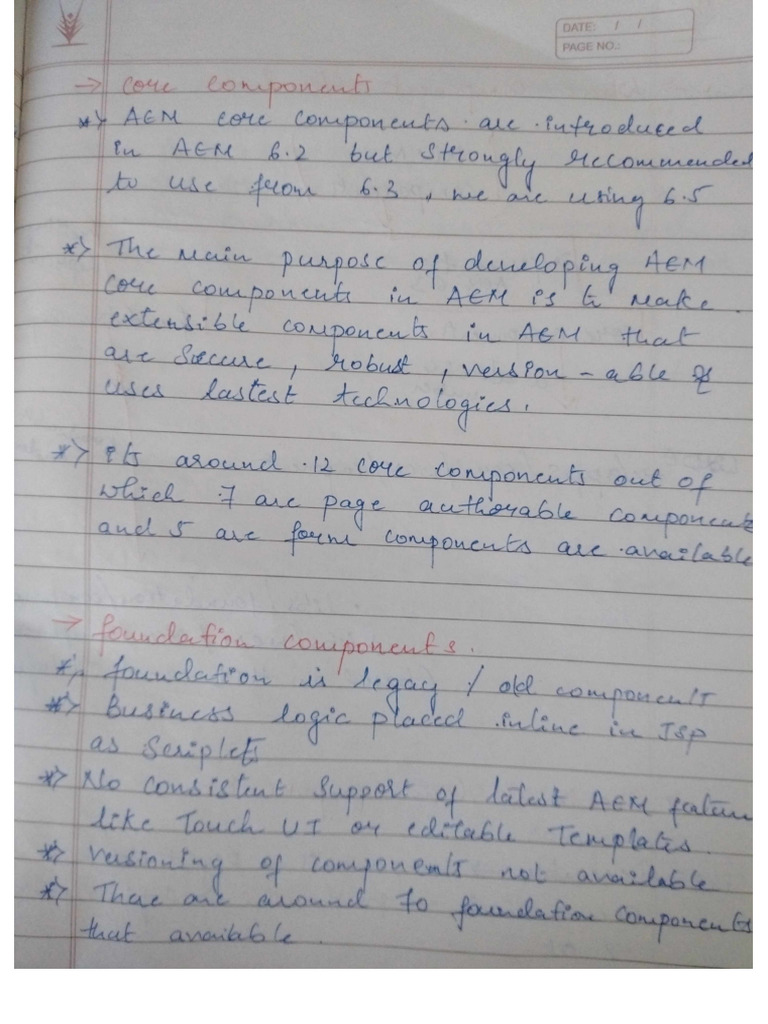 DATE: / /
PAGE NO.:
→ core components
*> AEM core components are introduced
in AEM 6.2 but strongly recommended
to use from 6.3, we are using 6.5
*> The main purpose of developing AEM
core components in AEM is to make
extensible components in AEM that
are secure, robust, version-able &
uses lastest technologies.
*> Its around 12 core components out of
which 7 are page authorable component
and 5 are form components are available
→ foundation components.
*> foundation is legacy / old component
*> Business logic placed inline in JSP
as Scriplets
*> No consistent support of latest AEM feature
like Touch UI or editable Templates.
*> versioning of components not available
*> There are around 70 foundation components
that available.